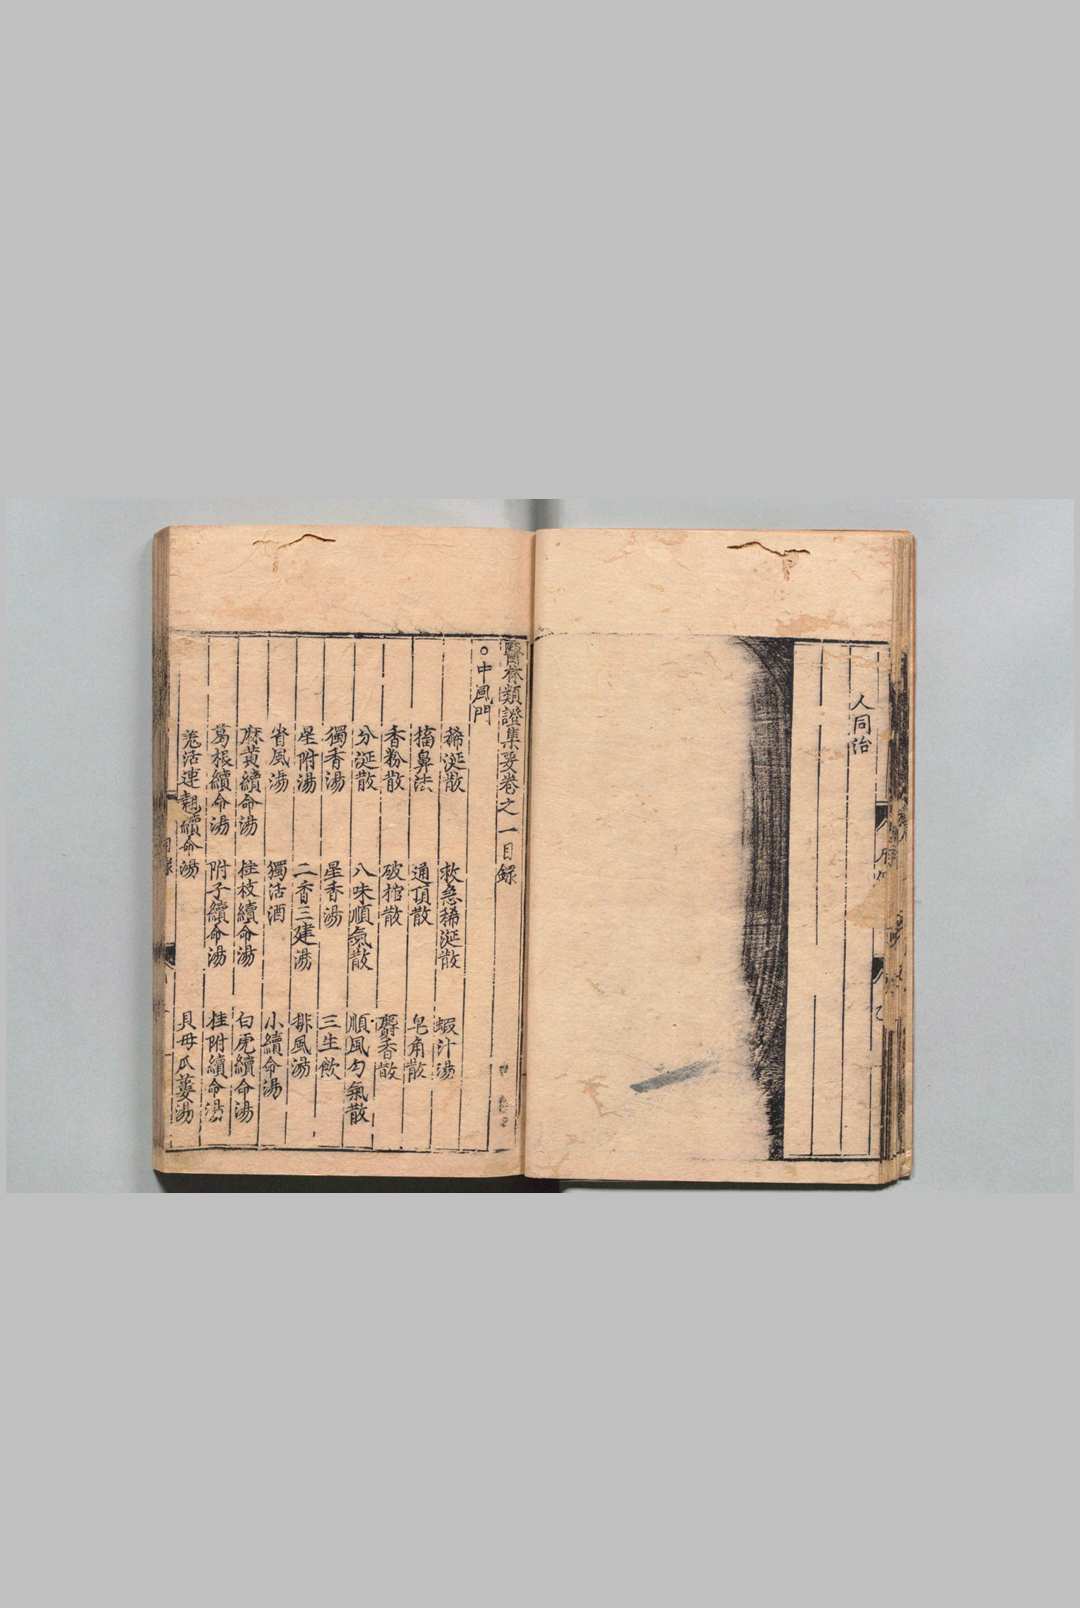 人同治
醫林類證集要卷之一目錄
○中風門
稀涎散 救急稀涎散 蝦汁湯
搐鼻法 通頂散 皂角散
香粉散 破棺散 麝香散
分涎散 八味順氣散 順風勻氣散
獨香湯 星香湯 三生飲
星附湯 二香三建湯 排風湯
省風湯 獨活酒 小續命湯
麻黃續命湯 桂枝續命湯 白虎續命湯
葛根續命湯 附子續命湯 桂附續命湯
羌活連翹續命湯 貝母瓜蔞湯